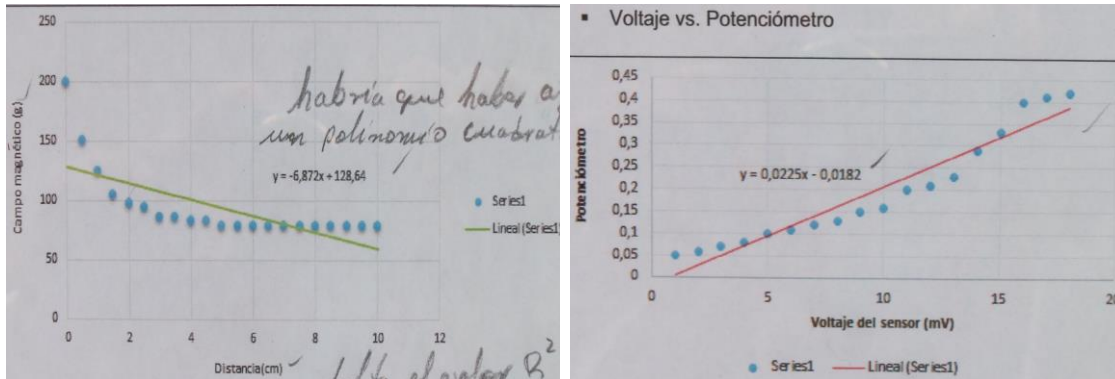 250
200
150
100
50
0
0 2 4 6 8 10 12
Campo magnético (g)
Distancia(cm)
habría que haber a
un polinomio cuadrat
y = -6,872x + 128,64
Series1
Lineal (Series1)
el valor R²
▪ Voltaje vs. Potenciómetro
0,45
0,4
0,35
0,3
0,25
0,2
0,15
0,1
0,05
0
0 5 10 15 20
Potenciómetro
y = 0,0225x - 0,0182
Voltaje del sensor (mV)
Series1 Lineal (Series1)